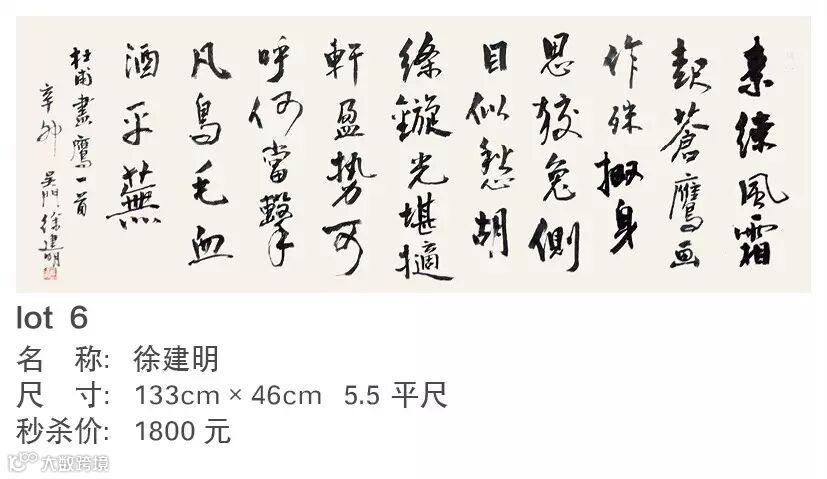 素練風霜
起蒼鷹画
作殊身
思狡兔側
目似愁胡
絛鏇光堪擿
軒盈勢可
呼何當擊
凡鳥毛血
洒平蕪
杜甫畫鷹一首
辛卯 吴門徐建明
lot 6
名 称: 徐建明
尺 寸: 133cm × 46cm 5.5 平尺
秒杀价: 1800 元
大数跨境